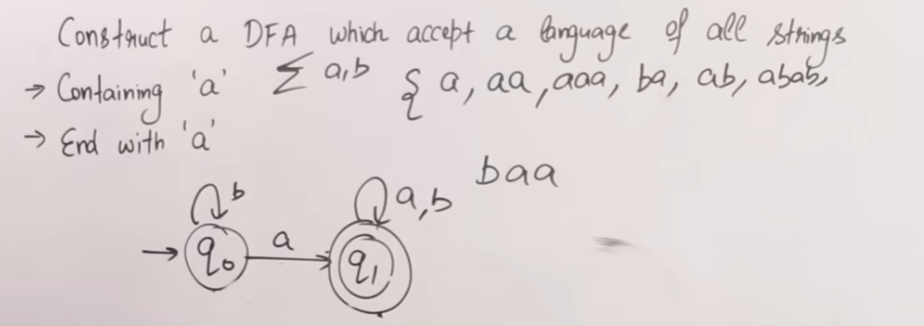 Construct a DFA which accept a language of all strings
→ Containing 'a' Σ a,b { a, aa, aaa, ba, ab, abab,
→ End with 'a'
baa
b a,b
a
q₀ q₁